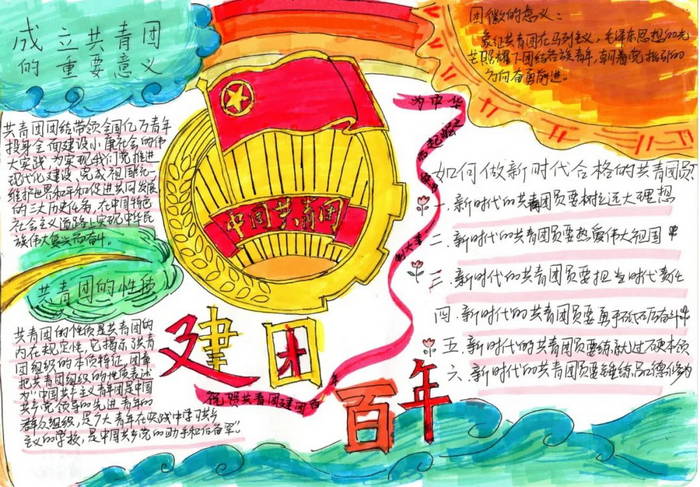 成立共青团
的重要意义
共青团团结带领全国亿万青年
投年全面建设小康社会的伟
大实践为实现我们党推进
现代化建设、完成祖国统一
维护世界和平和促进共同发展
的三大历史任务,在中国特色
社会主义道路上实现中华民
族伟大复兴而奋斗。
共青团的性质
共青团的性质是共青团的
内在规定性,它揭示了共青
团组织的本质特征,团章
把共青团组织的性质表述
为“中国共产主义青年团是中国
共产党领导的先进青年的
群众组织,是广大青年在实践中学习共产
主义的学校,是中国共产党的助手和后备军”
中国共青团
建团
百年
团徽的意义:
象征共青团在马列主义、毛泽东思想的光
芒照耀下团结各族青年,朝着党指引的
方向奋勇前进。
为中华
如何做新时代合格的共青团员
一.新时代的共青团员要树立远大理想
二.新时代的共青团员要热爱伟大祖国
三.新时代的共青团员要担当时代责任
四.新时代的共青团员要勇于砥砺奋斗
五.新时代的共青团员要练就过硬本领
六.新时代的共青团员要锤炼品德修为